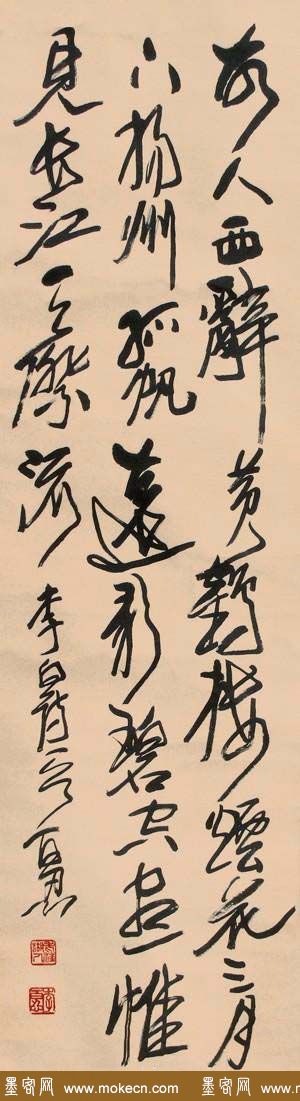 故人西辭黄鶴樓煙花三月
下揚州孤帆遠影碧空盡惟
見長江天際流 李白詩一首
墨客网 www.mokecn.com 墨客网 www.mokecn.com